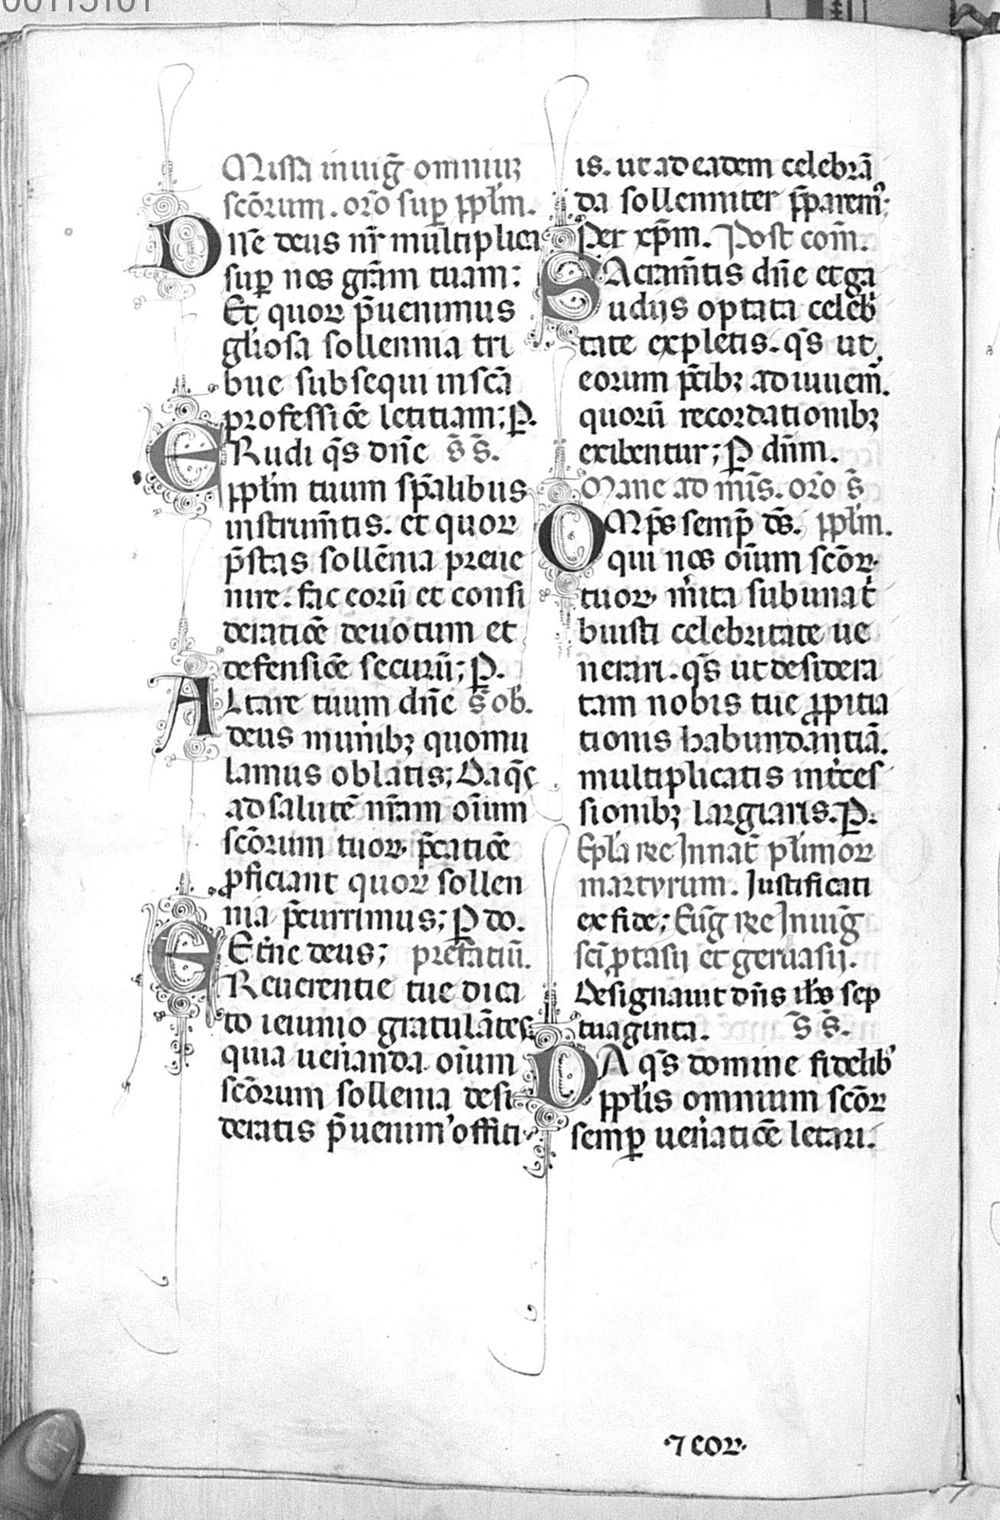 00115101
Missa in uig̃ omniuʒ
sc̃orum. or̃o sup̲ pp̱lm̃.
Dñe deus nr̃ multiplica
sup̲ nos gr̃am tuam:
Et quoꝝ p̃uenimus
gl̃iosa sollennia tri
bue subsequi in sc̃a
professiõe letitiam; P̲.
ERudi q̃s dñe s̃ s̃.
pp̱lm̃ tuum sp̃alibus
instrum̃tis. et quoꝝ
p̃stas soll̃enia preue
nire. fac eorũ et consi
deratiõe deuotum et
defensiõe securũ; P̲.
ALtare tuum dñe s̃ ob̃.
deus munibꝫ quomu
lamus oblatis; Da q̃s
ad salutẽ nr̃am oĩum
sc̃orum tuoꝝ p̃catiõe
ꝓficiant quoꝝ sollen
nia p̃currimus; P̲ do.
EEt̃ne deus; prefatiũ.
Reuerentie tue dica
to ieiunio gratulãtes
quia uen̄anda oĩum
sc̃orum sollenia desi
deratis p̃uenimꝰ offiti
is. ut ad eadem celebrã
da sollenniter p̃paremꝰ;
Per xp̃m. Post com̃.
SAcram̃tis dñe et ga
udijs optata celeb̾
tate expletis. q̃s ut
eorum p̃cibꝫ adiuuem̃.
quorũ recordationibꝫ
exibentur; P̲ dñm.
Mane ad mĩs. or̃o s̃
OMp̃s semp̲ d̃s. pp̱lm̃.
qui nos oĩum sc̃oꝝ
tuoꝝ m̃ita sub una t̾
buisti celebritate ue
nerari. q̃s ut desidera
tam nobis tue ꝓpitia
tionis habundantiã.
multiplicatis int̾ces
sionibꝫ largiaris. P̲.
Ep̃la rec̃ In nat̃ pl̃imoꝝ
martyrum. Iustificati
ex fide; Eũg rec̃ In uig̃
sc̃i ꝓtasij et geruasij.
Designauit dñs ih̃s sep
tuaginta. s̃ s̃.
DA q̃s domine fidelibꝰ
pp̱lis omnium sc̃oꝝ
semp̲ uen̾atiõe letari.
·⁊ eoꝝ·